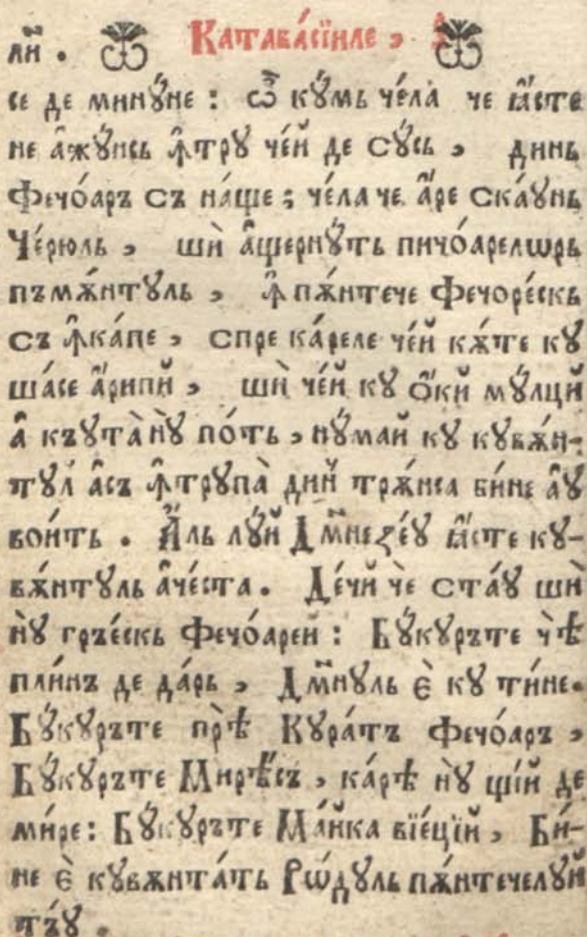 лй. Катавасїиле,
се де минꙋ́не: ѽ кꙋ́мь че́ла че ꙗ́сте
не а҆жꙋ́нсь ꙟ҆трꙋ че́й де сꙋ́сь, динь
Фечо́аръ съ на́ще; че́ла че а҆́ре ска́ꙋнь
Че́рюль, шѝ а҆щернꙋ́ть пичо́арелѡрь
пъмѫ́нтꙋль, ꙟ҆ пѫ́нтече фечоре́скь
съ ꙟ҆ка́пе, спре ка́реле че́й кѫ́те кꙋ
ша́се а҆́рипй, шѝ че́й кꙋ ѻ҆́кй мꙋ́лцй
а҆̀ къꙋта̀ нꙋ́ по́ть, нꙋ́май кꙋ кꙋвѫ́н-
тꙋл а҆съ ꙟ҆трꙋпа̀ дий трѫ́нса би́не а҆́ꙋ
вои́ть. А҆́ль лꙋ́й Дм҃незе́ꙋ ꙗ҆́сте кꙋ-
вѫ́нтꙋль а҆че́ста. Де́чй че ста́ꙋ шѝ
нꙋ́ гръе́скь фечо́арей: Бꙋ́кꙋръте чѣ̀
пли́нъ де да́рь, Дм҃нꙋль є҆̀ кꙋ ти́не.
Бꙋ́кꙋръте прѣ̀ Кꙋра́тъ Фечо́аръ,
Бꙋ́кꙋръте Мирѣ́съ, ка́рѣ нꙋ́ щі́й де
ми́ре: Бꙋ́кꙋръте Ма́йка вїе́цїй, Би́-
не є҆̀ кꙋвѫнта́ть Рѡ́дꙋль пѫ́нтечелꙋй
тъ́ꙋ.